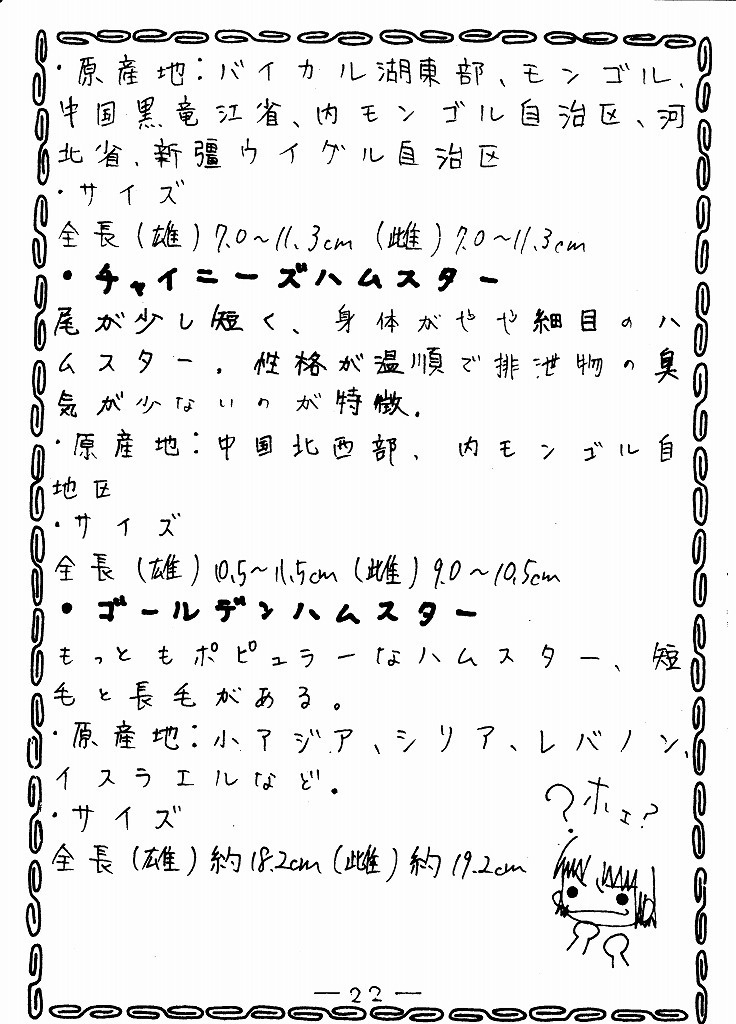 ・原産地：バイカル湖東部、モンゴル、
中国黒竜江省、内モンゴル自治区、河
北省、新疆ウイグル自治区
・サイズ
全長(雄)7.0〜11.3cm (雌)7.0〜11.3cm
・チャイニーズハムスター
尾が少し短く、身体がやや細目のハ
ムスター．性格が温順で排泄物の臭
気が少ないのが特徴．
・原産地：中国北西部、内モンゴル自
地区
・サイズ
全長(雄)10.5〜11.5cm (雌)9.0〜10.5cm
・ゴールデンハムスター
もっともポピュラーなハムスター、短
毛と長毛がある。
・原産地：小アジア、シリア、レバノン、
イスラエルなど．
・サイズ
全長(雄)約18.2cm(雌)約19.2cm
？ホェ？
—22—